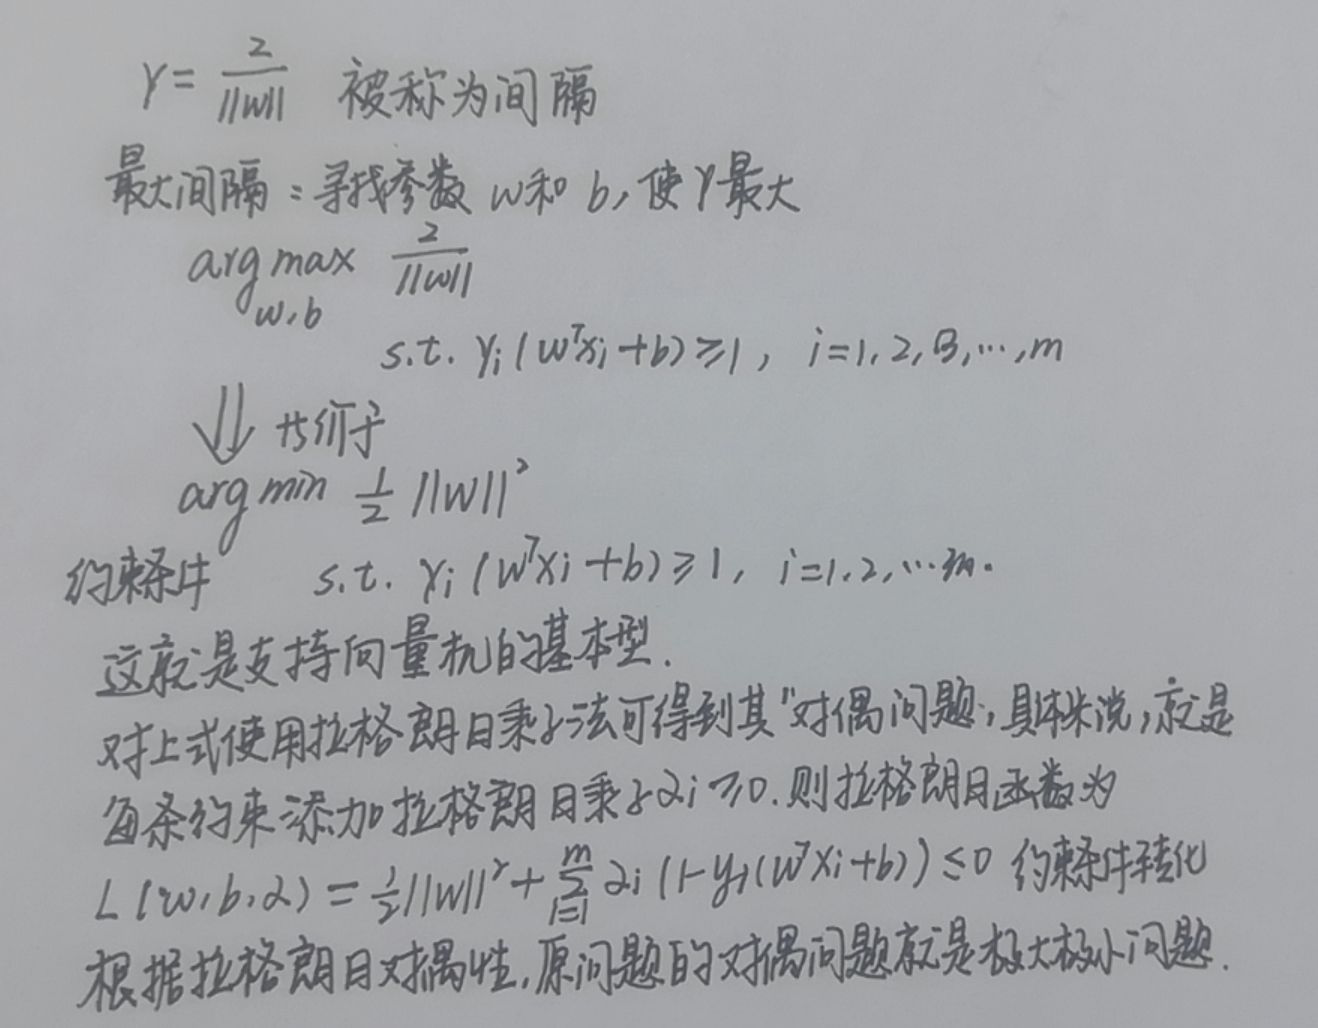 γ = 2/||w|| 被称为间隔
最大间隔：寻找参数 w和 b，使γ最大
arg max 2/||w||
w,b
s.t. yi(wᵀxi+b)≥1, i=1,2,3,…,m
⇓ 等价于
arg min 1/2 ||w||²
约束条件 s.t. yi(wᵀxi+b)≥1, i=1,2,…m.
这就是支持向量机的基本型.
对上式使用拉格朗日乘子法可得到其"对偶问题，具体来说，就是
每条约束添加拉格朗日乘子αi≥0.则拉格朗日函数为
L(w,b,α) = 1/2||w||² + Σ_{i=1}^{m} αi(1-yi(wᵀxi+b))≤0 约束条件转化
根据拉格朗日对偶性,原问题的对偶问题就是极大极小问题.